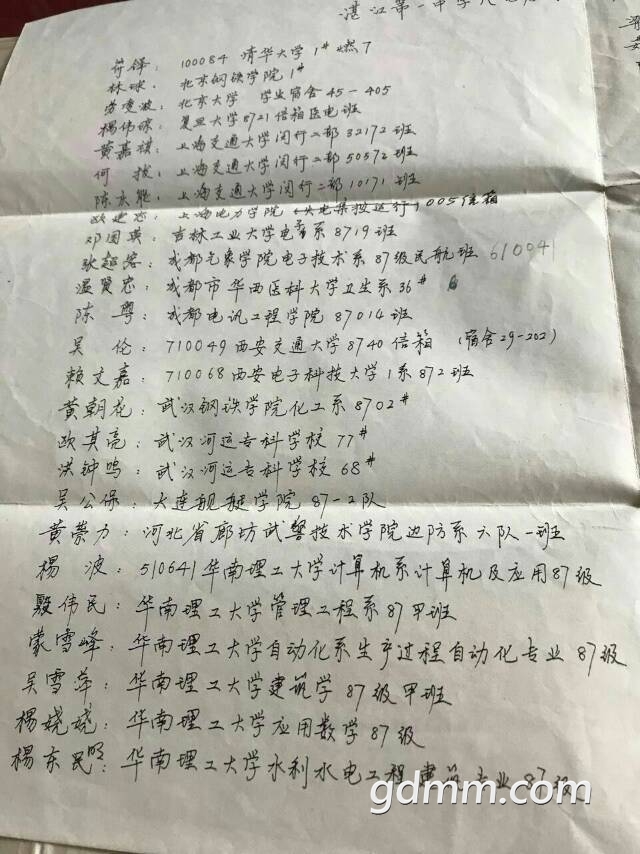 湛江第一中学
符锋：100084 清华大学1#燃7
林球：北京钢铁学院1#
苏凌波：北京大学 学生宿舍45-405
杨伟琼：复旦大学8721信箱医电班
黄嘉祺：上海交通大学闵行二部32172班
何拔：上海交通大学闵行二部50572班
陈宏能：上海交通大学闵行二部10171班
上海电力学院 005信箱
邓国英：吉林工业大学电系8719班
张超容：成都气象学院电子技术系87级民航班 610041
温贤忠：成都市华西医科大学卫生系36#
陈粤：成都电讯工程学院87014班
吴伦：710049西安交通大学8740信箱（宿舍29-202）
赖文嘉：710068西安电子科技大学1系872班
黄朝花：武汉钢铁学院化工系8702#
欧其亮：武汉河运专科学校77#
洪钟鸣：武汉河运专科学校68#
吴公保：大连舰艇学院87-2队
黄崇力：河北省廊坊武警技术学院边防系六队一班
杨波：510641华南理工大学计算机系计算机及应用87级
殷伟民：华南理工大学管理工程系87甲班
蒙雪峰：华南理工大学自动化系生产过程自动化专业87级
吴雪萍：华南理工大学建筑学87级甲班
杨娆娆：华南理工大学应用数学87级
杨东明：华南理工大学水利水电工程建筑专业87级
gdmm.com